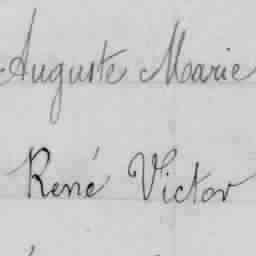 Auguste Marie
René Victor